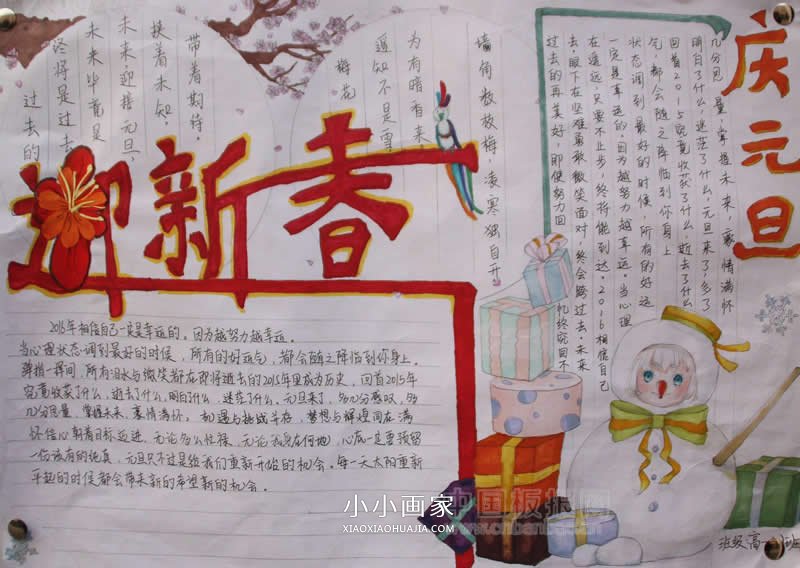 庆元旦
几分思量,掌握未来,豪情满怀
明白了什么,迷茫了什么,元旦来了,多了
回首2015究竟收获了什么 逝去了什么
气,都会随之降临到你身上
状态调到最好的时候,所有的好运
一定是幸运的,因为越努力越幸运。当心理
在遥远,只要不止步,终将能到达。2016相信自己
去,眼下在坚难勇敢微笑面对,终会跨过去。未来
过去的再美好,即使努力回忆终究回不
墙角数枝梅,凌寒独自开
为有暗香来
遥知不是雪
梅花
带着期待,
扶着未知,
未来迎接元旦,
未来毕竟是
终将是过去
过去的
迎新春
2015年相信自己一定是幸运的。因为越努力越幸运。
当心理状态调到最好的时候,所有的好运气,都会随之降临到你身上。
弹指一挥间,所有泪水与微笑都在即将逝去的2015年里成为历史,回首2015年
究竟收获了什么,逝去了什么,明白了什么,迷茫了什么,元旦来了,多几分感叹,多
几分思量,掌握未来,豪情满怀。机遇与挑战并存,梦想与辉煌同在满
怀信心朝着目标迈进,无论多么忙碌,无论我身在何地,心底一定要预留
一份该有的纯真,元旦只不过是给我们重新开始的机会。每一天太阳重新
升起的时候都会带来新的希望新的机会。
小小画家
XIAOXIAOHUAJIA.COM
中国板报网
班级高一